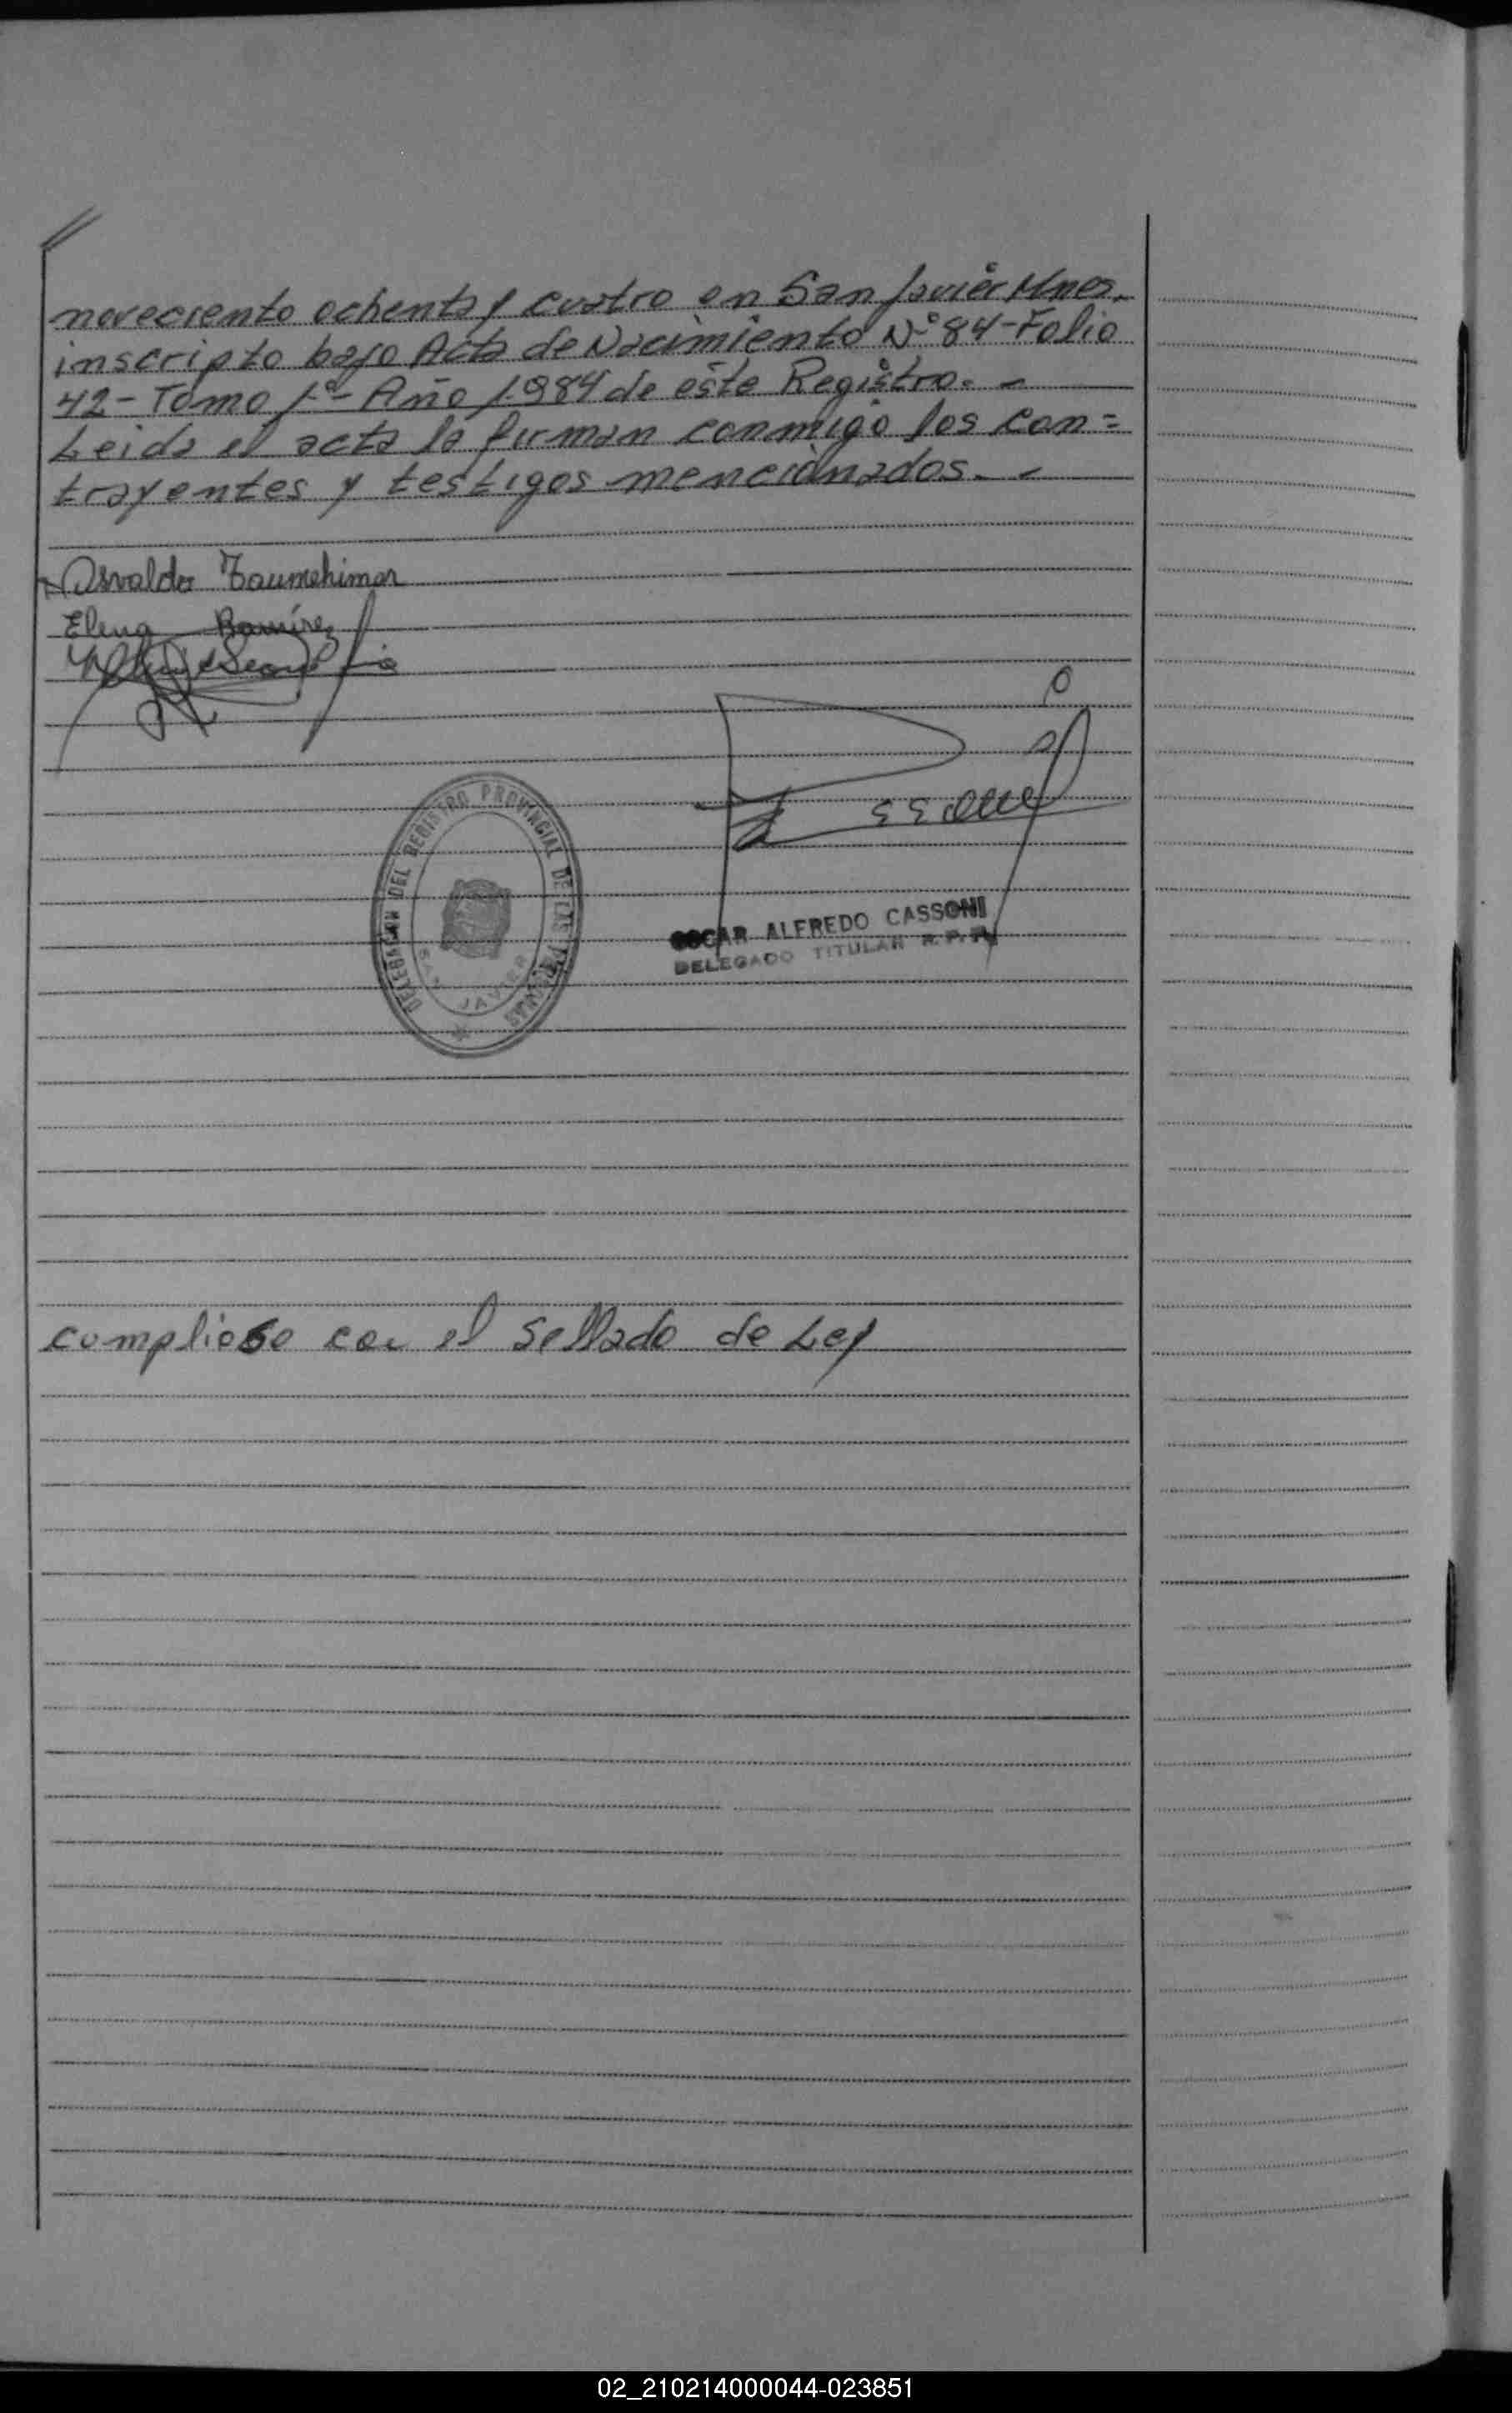 noveciento ochenta y cuatro en San Javier Mnes.
inscripto bajo Acta de Nacimiento Nº 84-Folio
42- Tomo 1º- Año 1984 de este Registro. -
Leida el acta la firman conmigo los con=
trayentes y testigos mencionados. -
Osvaldo
Elena Ramírez
DELEGACION DEL REGISTRO PROVINCIAL DE LAS PERSONAS
SAN JAVIER
OSCAR ALFREDO CASSONI
DELEGADO TITULAR R. P. P.
compliose con el sellado de Ley
02_210214000044-023851